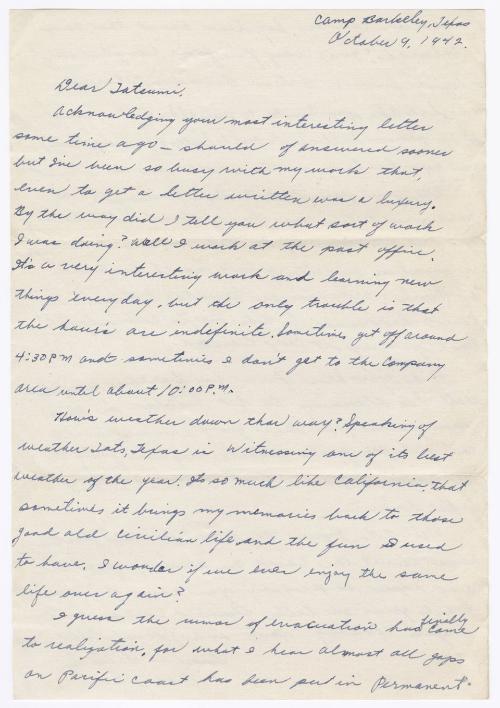 Camp Barkeley, Texas
October 9, 1942.
Dear Tatsumi,
Acknowledging your most interesting letter
some time ago - should of answered sooner
but I've been so busy with my work that,
even to get a letter written was a luxury.
By the way did I tell you what sort of work
I was doing? Well I work at the post office.
It's a very interesting work and learning new
things everyday, but the only trouble is that
the hours are indefinite. Sometimes get off around
4:30 PM and sometimes I don't get to the Company
area until about 10:00 P.M.
How's weather down thar way? Speaking of
weather Tats, Texas is witnessing one of its best
weather of the year. Its so much like California, that
sometimes it brings my memories back to those
good old civilian life and the fun I used
to have. I wonder if we ever enjoy the same
life over again?
I guess the rumor of evacuation has finally come
to realization, for what I hear almost all gaps
on Pacific Coast has been put in "Permanent"